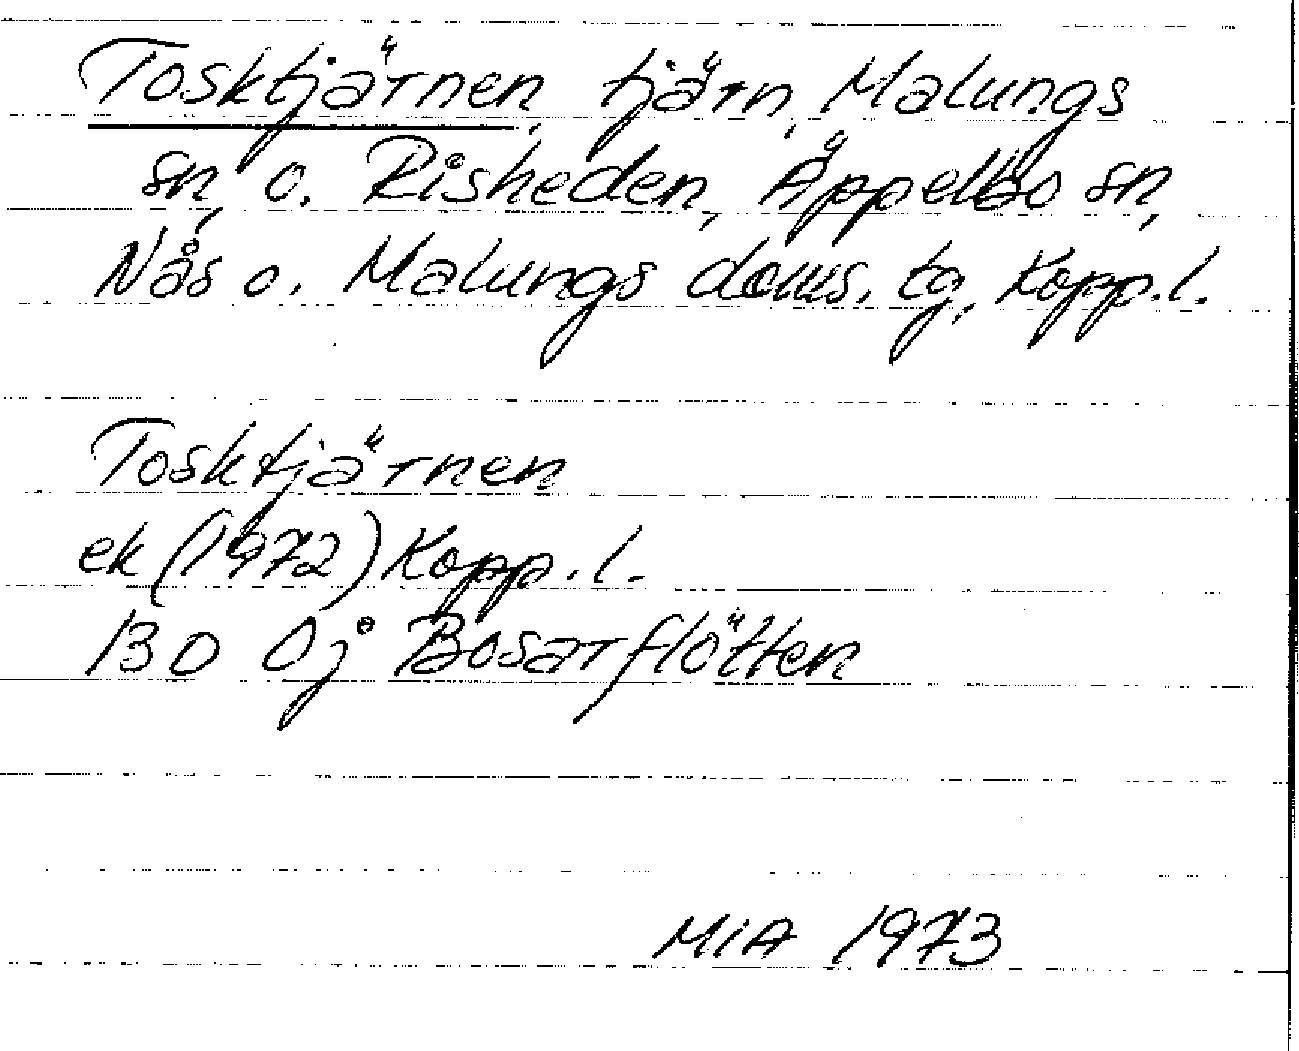 Tosktjärnen, tjärn, Malungs
sn, o. Risheden, Äppelbo sn,
Nås o. Malungs doms. tg, Kopp.l.
Tosktjärnen
ek (1972) Kopp.l.
13D 0j Bosarflötten
MIA 1973